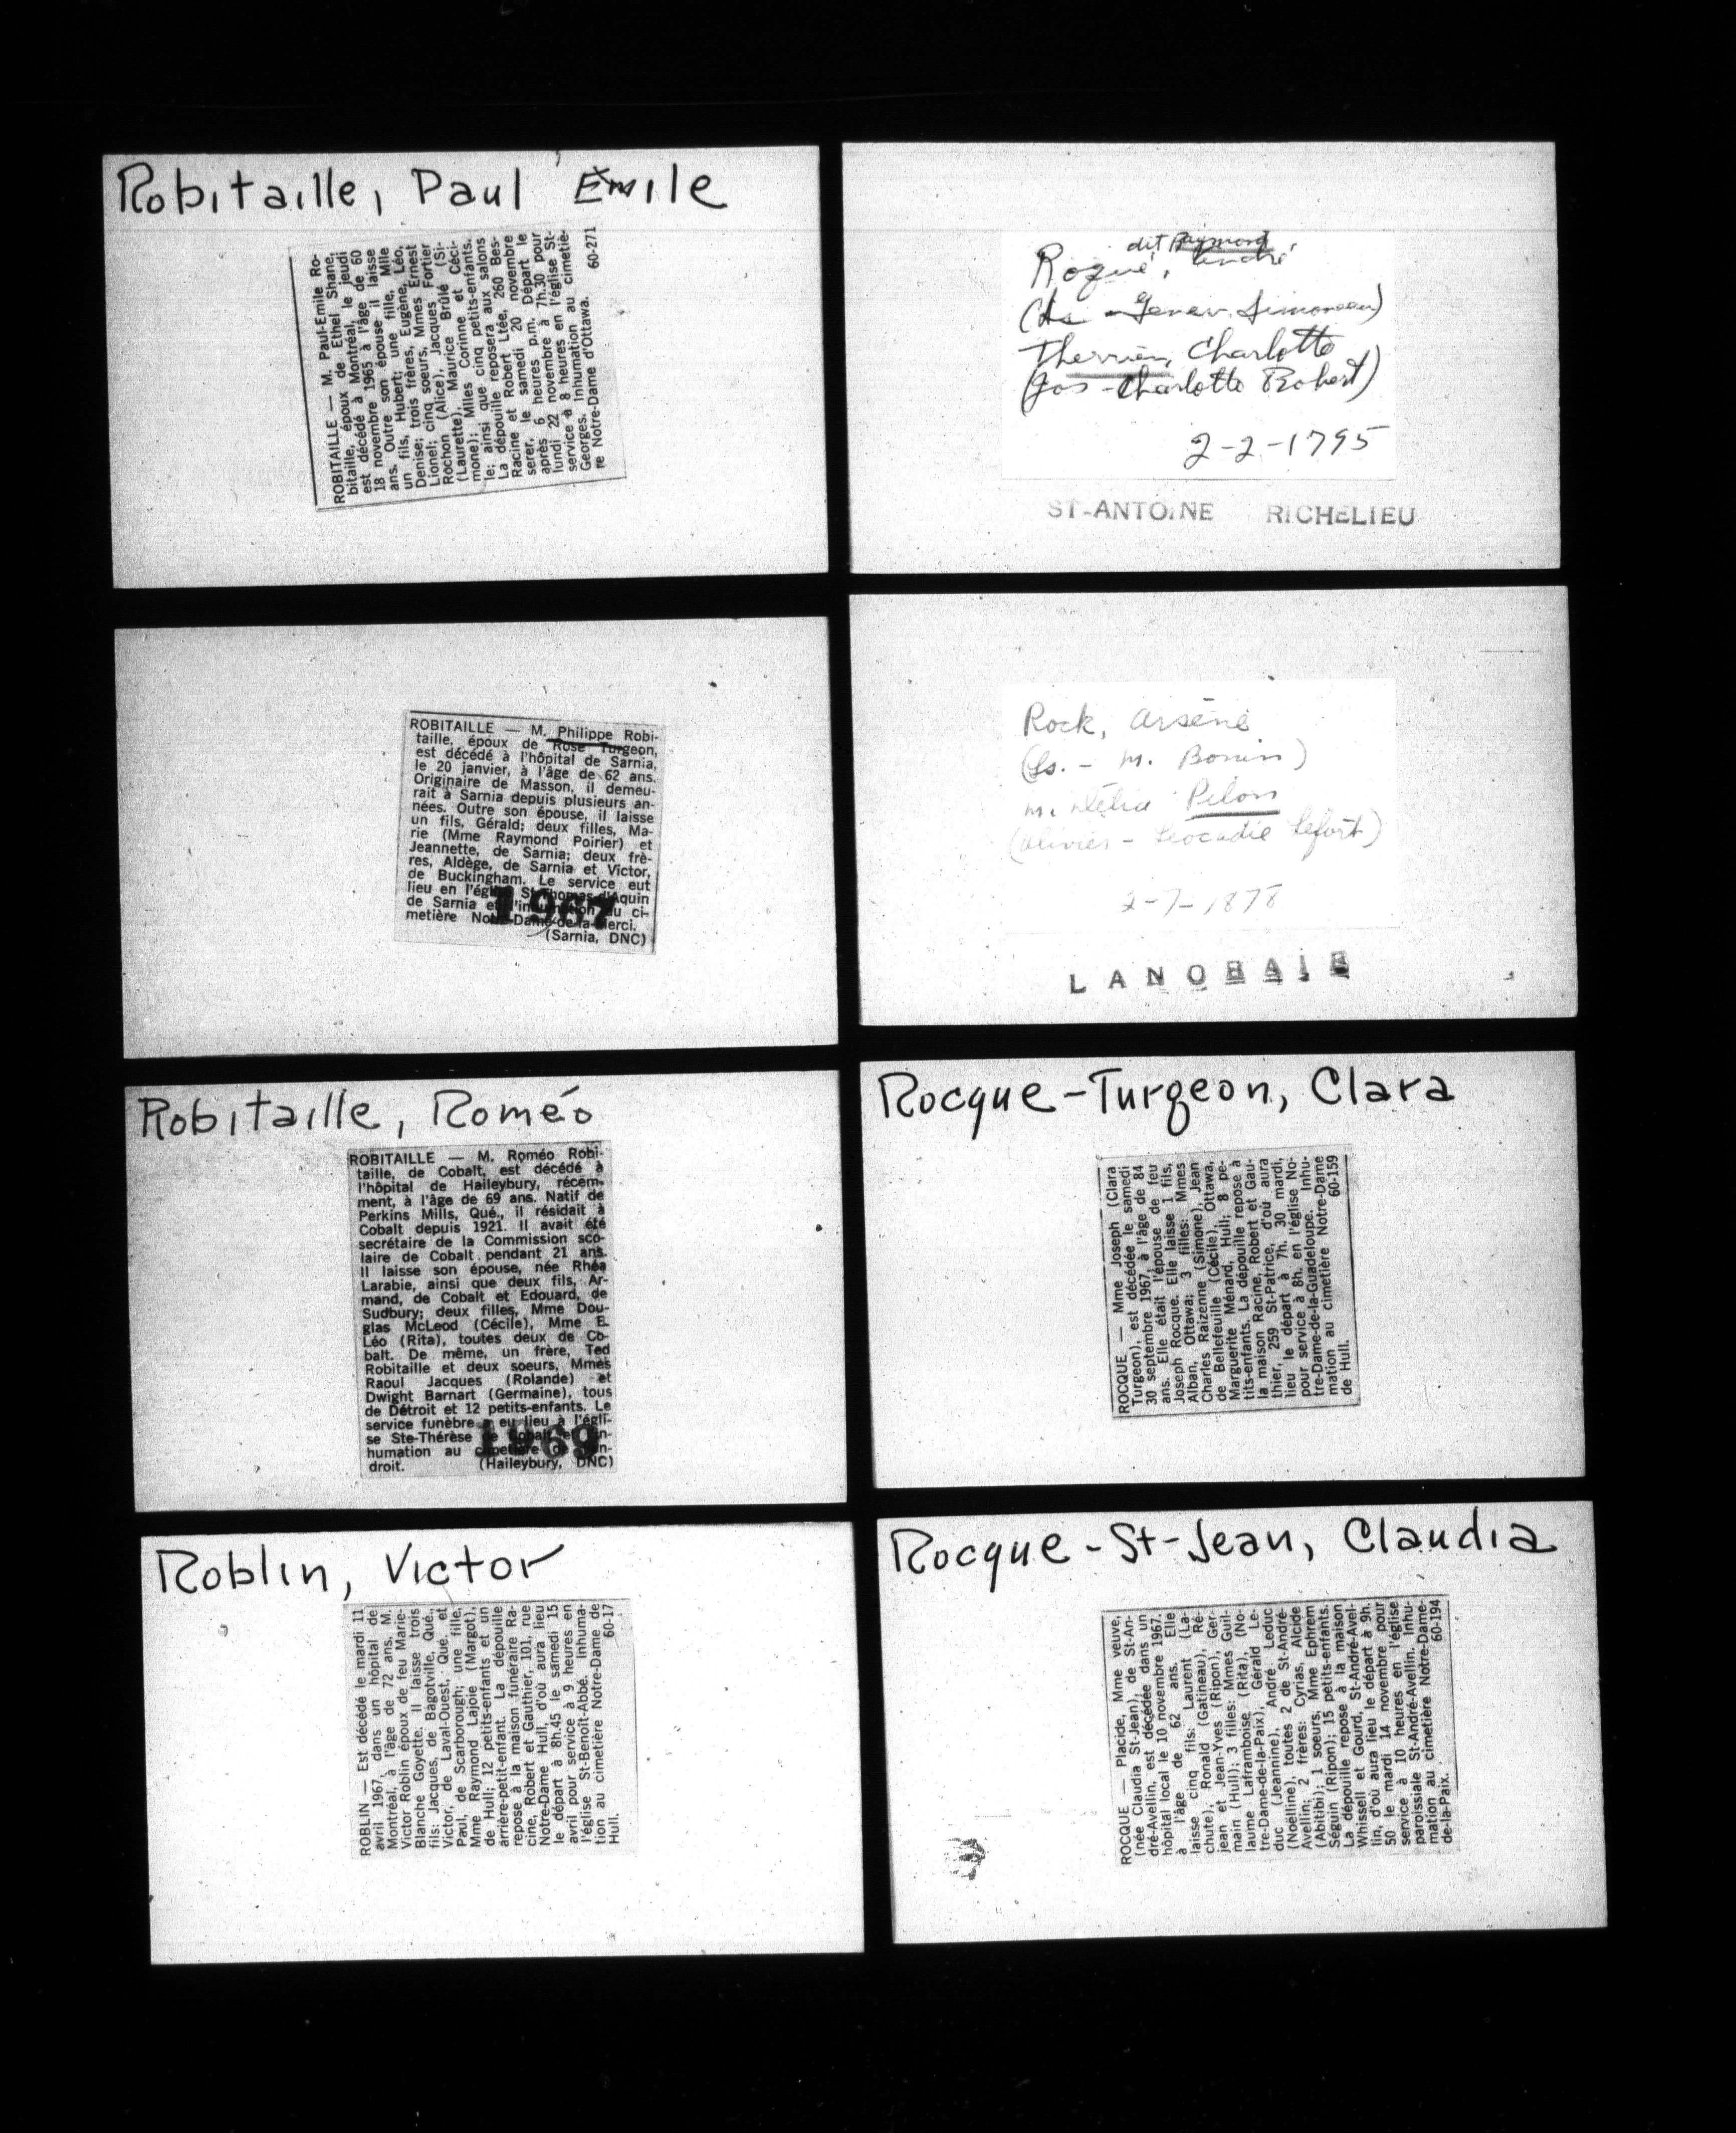 Robitaille, Paul Émile
ROBITAILLE — M. Paul-Emile Ro-
bitaille, époux de Ethel Shane,
est décédé à Montréal, le jeudi
18 novembre 1965 à l'âge de 60
ans. Outre son épouse il laisse
un fils, Hubert; une fille, Mlle
Denise; trois frères, Eugène, Léo,
Lionel; cinq soeurs, Mmes Ernest
Rochon (Alice), Jacques Fortier
(Laurette), Maurice Brûlé (Si-
mone); Mlles Corinne et Céci-
le; ainsi que cinq petits-enfants.
La dépouille reposera aux salons
Racine et Robert Ltée, 260 Bes-
serer, le samedi 20 novembre
après 6 heures p.m. Départ le
lundi 22 novembre à 7h.30 pour
service à 8 heures en l'église St-
Georges. Inhumation au cimetiè-
re Notre-Dame d'Ottawa.
60-271
ROBITAILLE — M. Philippe Robi-
taille, époux de Rose Turgeon,
est décédé à l'hôpital de Sarnia,
le 20 janvier, à l'âge de 62 ans.
Originaire de Masson, il demeu-
rait à Sarnia depuis plusieurs an-
nées. Outre son épouse, il laisse
un fils, Gérald; deux filles, Ma-
rie (Mme Raymond Poirier) et
Jeannette, de Sarnia; deux frè-
res, Aldège, de Sarnia et Victor,
de Buckingham. Le service eut
lieu en l'église St-Thomas-d'Aquin
de Sarnia et l'inhumation au ci-
metière Notre-Dame-de-la-Merci.
(Sarnia, DNC)
1967
Robitaille, Roméo
ROBITAILLE — M. Roméo Robi-
taille, de Cobalt, est décédé à
l'hôpital de Haileybury, récem-
ment, à l'âge de 69 ans. Natif de
Perkins Mills, Qué., il résidait à
Cobalt depuis 1921. Il avait été
secrétaire de la Commission sco-
laire de Cobalt pendant 21 ans.
Il laisse son épouse, née Rhéa
Larabie, ainsi que deux fils, Ar-
mand, de Cobalt et Edouard, de
Sudbury; deux filles, Mme Dou-
glas McLeod (Cécile), Mme E.
Léo (Rita), toutes deux de Co-
balt. De même, un frère, Ted
Robitaille et deux soeurs, Mmes
Raoul Jacques (Rolande) et
Dwight Barnart (Germaine), tous
de Détroit et 12 petits-enfants. Le
service funèbre a eu lieu à l'égli-
se Ste-Thérèse de Cobalt et l'in-
humation au cimetière de l'en-
droit. (Haileybury, DNC)
1969
Roblin, Victor
ROBLIN — Est décédé le mardi 11
avril 1967, dans un hôpital de
Montréal, à l'âge de 72 ans, M.
Victor Roblin époux de feu Marie-
Blanche Goyette. Il laisse trois
fils: Jacques, de Bagotville, Qué.,
Victor, de Laval-Ouest, Qué. et
Paul, de Scarborough; une fille,
Mme Raymond Lajoie (Margot),
de Hull; 12 petits-enfants et un
arrière-petit-enfant. La dépouille
repose à la maison funéraire Ra-
cine, Robert et Gauthier, 101, rue
Notre-Dame Hull, d'où aura lieu
le départ à 8h.45 le samedi 15
avril pour service à 9 heures en
l'église St-Benoît-Abbé. Inhuma-
tion au cimetière Notre-Dame de
Hull. 60-17
dit Raymond
Roque, André
(Ls - Genev. Simoneau)
Therrien, Charlotte
(Jos - Charlotte Robert)
2-2-1795
ST-ANTOINE RICHELIEU
Rock, Arsène
(Ls. - M. Bonin)
m. Pilon
(Olivier - Léocadie Lefort)
2-7-1878
LANORAIE
Rocque-Turgeon, Clara
ROCQUE — Mme Joseph (Clara
Turgeon), est décédée le samedi
30 septembre 1967, à l'âge de 84
ans. Elle était l'épouse de feu
Joseph Rocque. Elle laisse 1 fils,
Alban, Ottawa; 3 filles: Mmes
Charles Raizenne (Simone), Jean
de Bellefeuille (Cécile), Ottawa,
Marguerite Ménard, Hull; 8 pe-
tits-enfants. La dépouille repose à
la maison Racine, Robert et Gau-
thier, 259 St-Patrice, d'où aura
lieu le départ à 7h. 30 mardi,
pour service à 8h. en l'église No-
tre-Dame-de-la-Guadeloupe. Inhu-
mation au cimetière Notre-Dame
de Hull. 60-159
Rocque-St-Jean, Claudia
ROCQUE — Placide, Mme veuve,
(née Claudia St-Jean), de St-An-
dré-Avellin, est décédée dans un
hôpital local le 10 novembre 1967,
à l'âge de 62 ans. Elle
laisse cinq fils: Laurent (La-
chute), Ronald (Gatineau), Ré-
jean et Jean-Yves (Ripon), Ger-
main (Hull); 3 filles: Mmes Guil-
laume Laframboise (Rita), (No-
tre-Dame-de-la-Paix), Gérald Le-
duc (Jeannine), André Leduc
(Noëlline), toutes 2 de St-André-
Avellin; 2 frères: Cyrias, Alcide
(Abitibi); 1 soeurs, Mme Ephrem
Séguin (Ripon); 15 petits-enfants.
La dépouille repose à la maison
Whissell et Gourd, St-André-Avel-
lin, d'où aura lieu le départ à 9h.
50 le mardi 14 novembre pour
service à 10 heures en l'église
paroissiale St-André-Avellin. Inhu-
mation au cimetière Notre-Dame-
de-la-Paix. 60-194